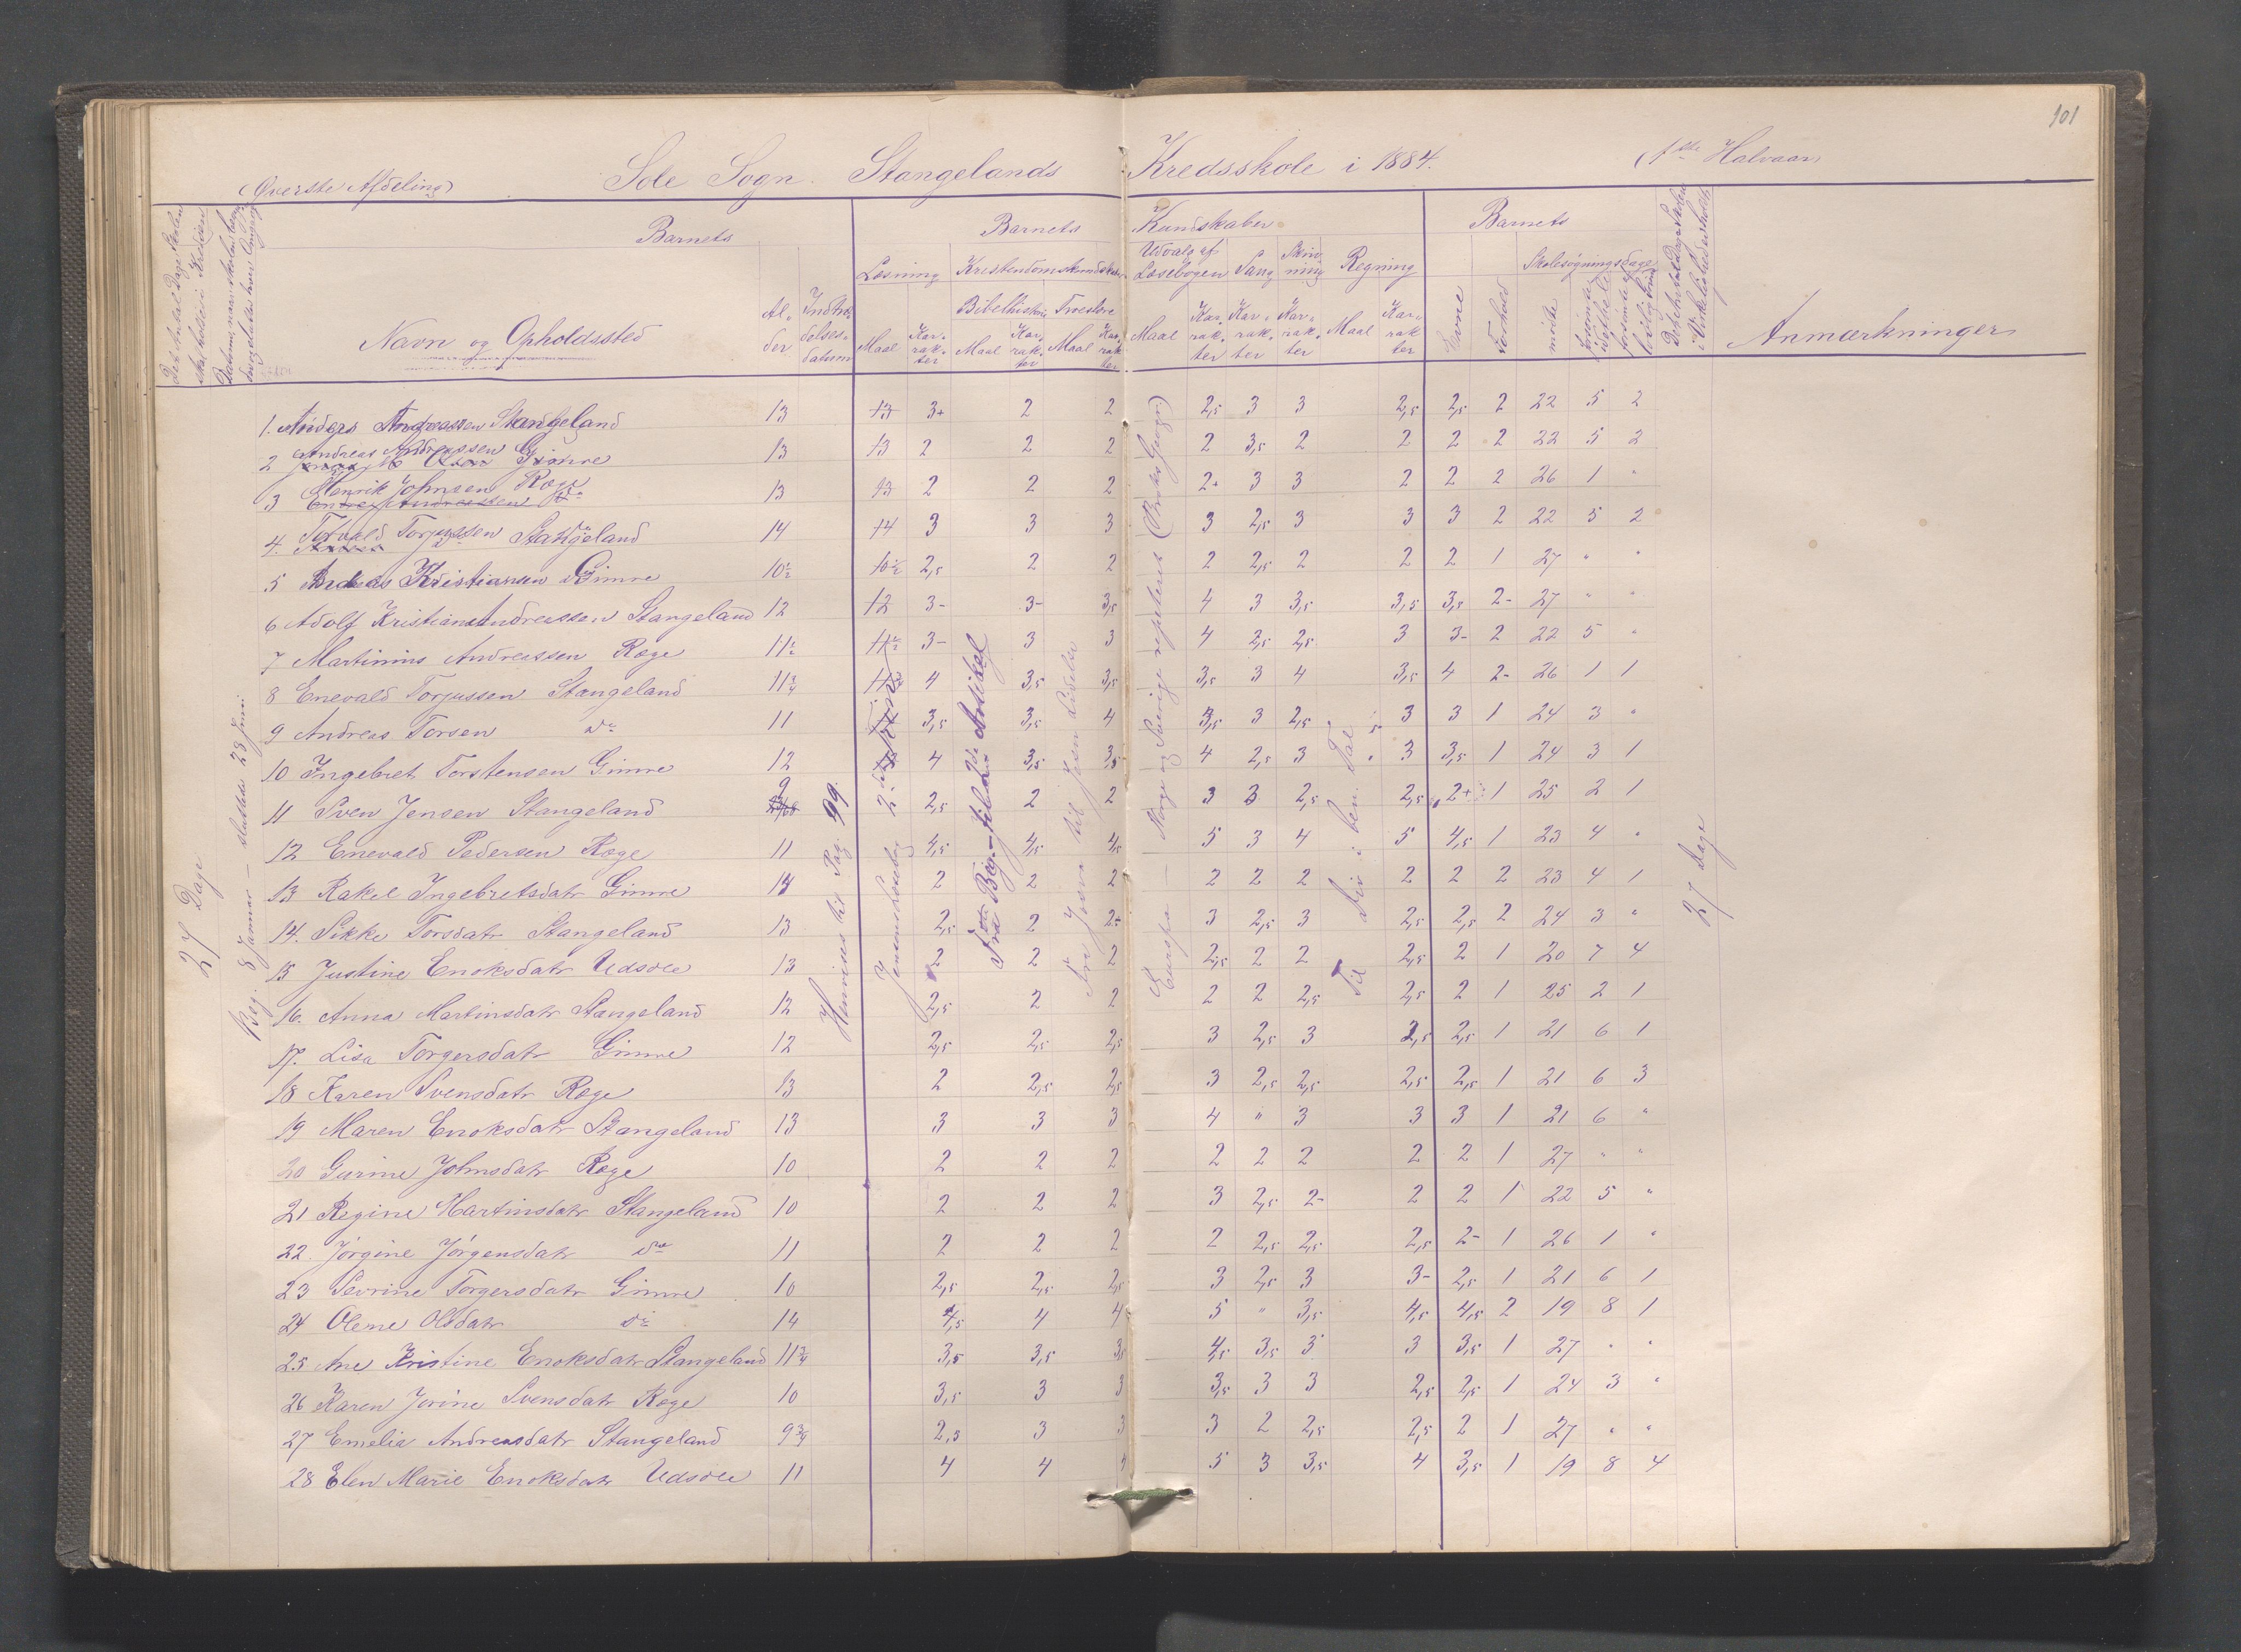 101
(Øverste Afdeling) Sole Sogn. Stangelands Kredsskole i 1884. (1ste Halvaar)
Barnets Barnets Kundskaber Barnets
Læsning Kristendomskundskab Udvalg af Læsebogen Sang Skrivning Regning Evne Forhold Skolesøgningsdage
Bibelhistorie Troeslære
Navn og Opholdssted Alder Indtrædelsesdatum Maal Karakter Maal Karakter Maal Karakter Maal Karakter Karakter Karakter Maal Karakter mødte Anmærkninger
27 Dage
Beg. 8 Januar – sluttede 28 Juni
1. Anders Andreassen Stangeland 13 13 3+ 2 2 2,5 3 3 2,5 2,5 2 22 5 2
2 Andreas Andreassen Gimre 13 13 2 2 2 2 3,5 2 2 2 2 22 5 2
3 Henrik Johnsen Røge 13 13 2 2 2 2+ 3 3 2 2 2 26 1 "
4. Torvald Torjussen Stangeland 14 14 3 3 3 3 2,5 3 3 3 2 22 5 2
5 Andreas Kristiansen Gimre 10½ 10½ 2,5 2 2 2 2,5 2 2 2 1 27 " "
6 Adolf Kristian Andreassen Stangeland 12 12 3- 3- 3,5 4 3 3,5 3,5 3,5 2- 27 " "
7 Martinius Andreassen Røge 11½ 11½ 3- 3 3 4 2,5 2,5 3 3- 2 22 5 "
8 Enevald Torjussen Stangeland 11¾ 4 3,5 3,5 3,5 3 4 3,5 4 2- 26 1 1
9 Andreas Torsen do 11 3,5 3,5 4 3,5 3 2,5 3 3 1 24 3 "
10 Ingebret Torstensen Gimre 12 4 3,5 3,5 4 2,5 3 3 3,5 1 24 3 1
11 Sven Jensen Stangeland 9 2,5 2 2 3 3 2,5 2,5 2+ 1 25 2 1
12 Enevald Pedersen Røge 11 4,5 4,5 4,5 5 3 4 5 4,5 1 23 4 "
13 Rakel Ingebretsdatr Gimre 14 2 2 2 2 2 2 2 2 2 23 4 1
14. Sikke Torsdatr Stangeland 13 2,5 2 2- 3 2,5 3 2,5 2,5 2 24 3 "
15 Justine Enoksdatr Udsole 13 2 2 2 2,5 2 2 2,5 2 1 20 7 4
16. Anna Martinsdatr Stangeland 12 2,5 2 2 2 2 2,5 2,5 2 1 25 2 1
17. Lisa Torgersdatr Gimre 12 2,5 2,5 2,5 3 2,5 3 2,5 2,5 1 21 6 1
18 Karen Svensdatr Røge 13 2 2,5 2,5 3 2,5 2,5 2,5 2,5 1 21 6 3
19 Maren Enoksdatr Stangeland 13 3 3 3 4 " 3 3 3 1 21 6 "
20 Gurine Johnsdatr Røge 10 2 2 2 2 2 2 2 2 1 27 " "
21 Regine Martinsdatr Stangeland 10 2 2 2 3 2,5 2- 2 2 1 22 5 "
22. Jørgine Jørgensdatr do 11 2 2 2 2 2,5 2,5 2,5 2- 1 26 1 "
23 Sevrine Torgersdatr Gimre 10 2,5 2,5 2,5 3 2,5 3 3- 2,5 1 21 6 1
24 Olene Olsdatr do 14 4,5 4 4 5 " 3,5 4,5 4,5 2 19 8 1
25 Ane Kristine Enoksdatr Stangeland 11¾ 3,5 3,5 3,5 4,5 3,5 3 3 3,5 1 27 " "
26 Karen Jorine Svensdatr Røge 10 3,5 3 3 3,5 3 3 2,5 2,5 1 24 3 "
27 Emelia Andreasdatr Stangeland 9¾ 2,5 3 3 3 2 2,5 2,5 2 1 27 " "
28 Elen Marie Enoksdatr Udsole 11 4 4 4 5 3 3,5 4 3,5 1 19 8 4
Henvises til Pag. 99.
Jensens Læsebog
Fra Jesu til Jesu Lidelse
Europa – Norge og Sverige repeteret (Broks Geogr.)
Til Div i ben. Tal
27 Dage